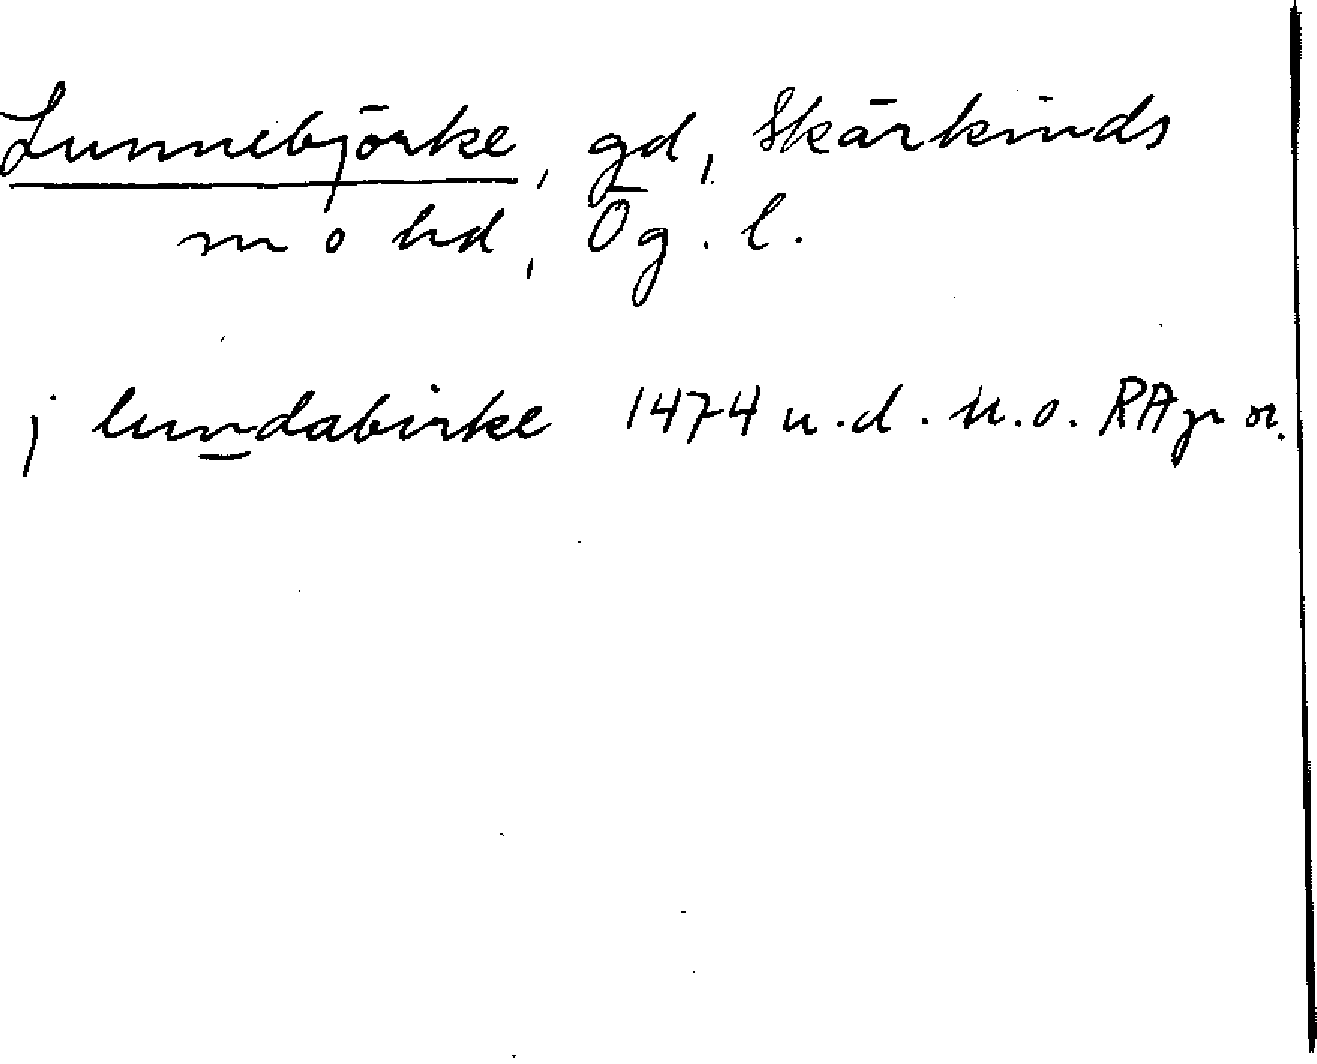 Lunnebjörke, gd, Skärkinds
sn o hd, Ög. l.
j lundabirke 1474 u.d. u.o. RAp or.